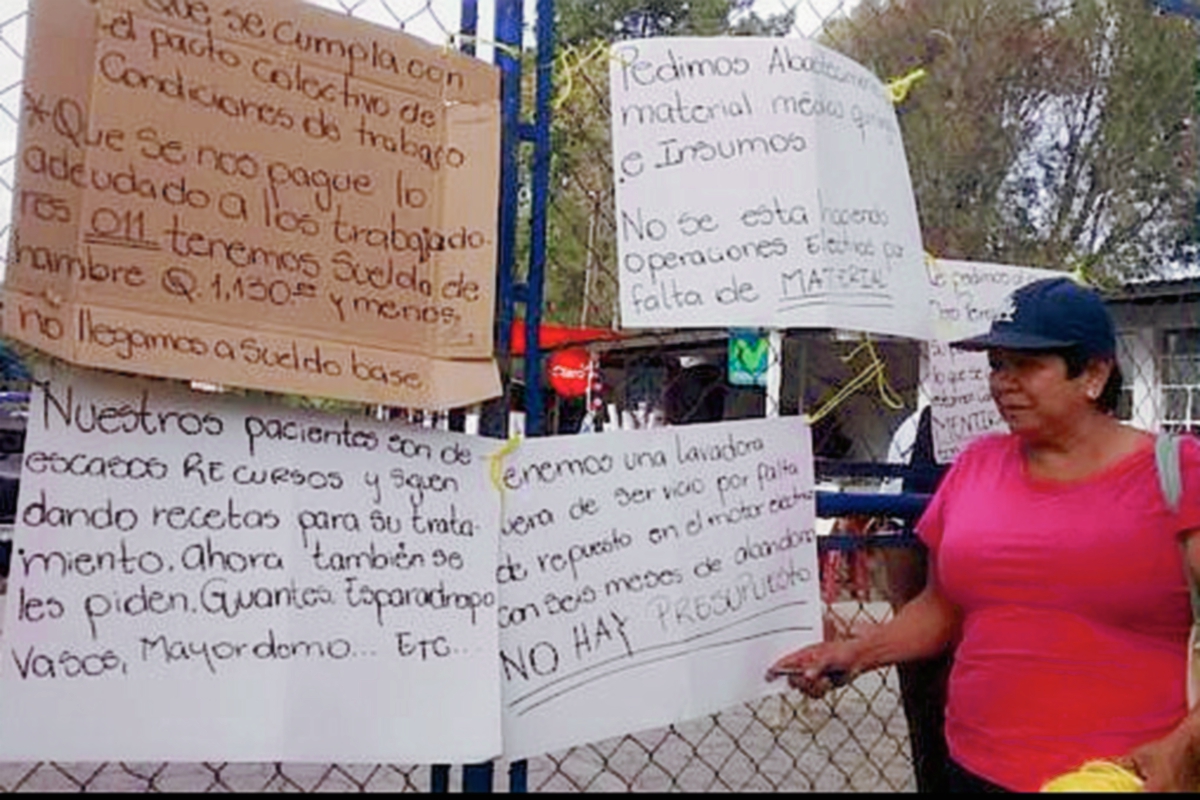 Que se cumpla con
el pacto colectivo de
Condiciones de trabajo
*Que se nos pague lo
adeudado a los trabajado-
res 011 tenemos Sueldo de
hambre Q.1,130.00 y menos,
no llegamos a Sueldo base
Pedimos
material médico
e Insumos
No se esta haciendo
operaciones Electivas por
falta de MATERIAL
Nuestros pacientes son de
escasos RECURSOS y siguen
dando recetas para su trata-
miento. Ahora también se
les piden. Guantes. Esparadrapo
Vasos, Mayordomo... ETC...
enemos una lavadora
uera de servicio por falta
de repuesto en el motor electri
con seis meses de abandono
NO HAY PRESUPUESTO
e pedimos
lo que se
MENTIR
Claro